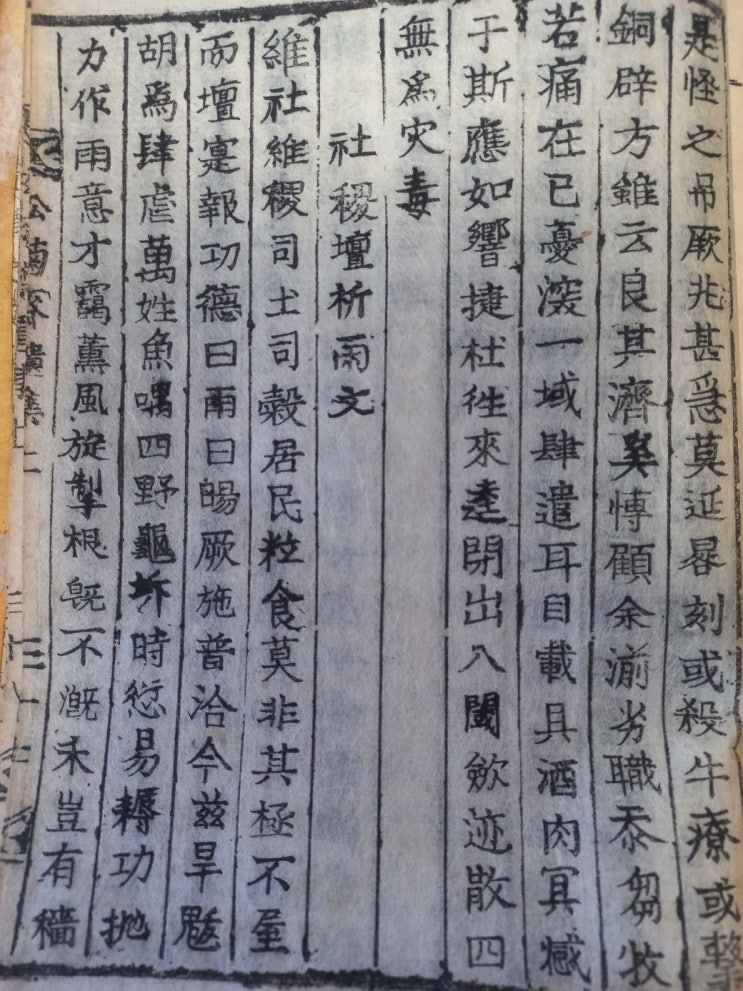 是怪之吊厥兆甚急莫延晷刻或殺牛療或擊
銅辟方雖云良其濟奚博顧余湔劣職忝芻牧
若痛在已憂深一域肆遣耳目載具酒肉冥慽
于斯應如響捷杜徃來逵閉出入閾歛迹散四
無爲灾毒
社稷壇祈雨文
維社維稷司土司穀居民粒食莫非其極不屋
而壇寔報功德曰雨曰暘厥施普洽今玆旱魃
胡爲肆虐萬姓魚喁四野龜坼時愆易耨功抛
力作雨意才靄薰風旋掣根旣不漑禾豈有穡